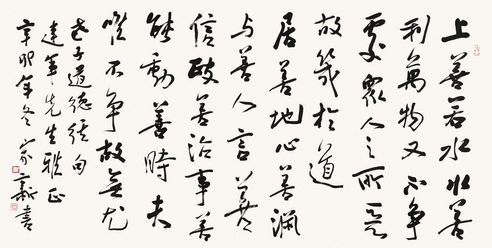 上善若水水善
利萬物又不争
處衆人之所惡
故幾於道
居善地心善渊
与善人言善
信政善治事善
能動善時夫
唯不争故無尤
老子道德经句
建先生雅正
辛卯年冬家書